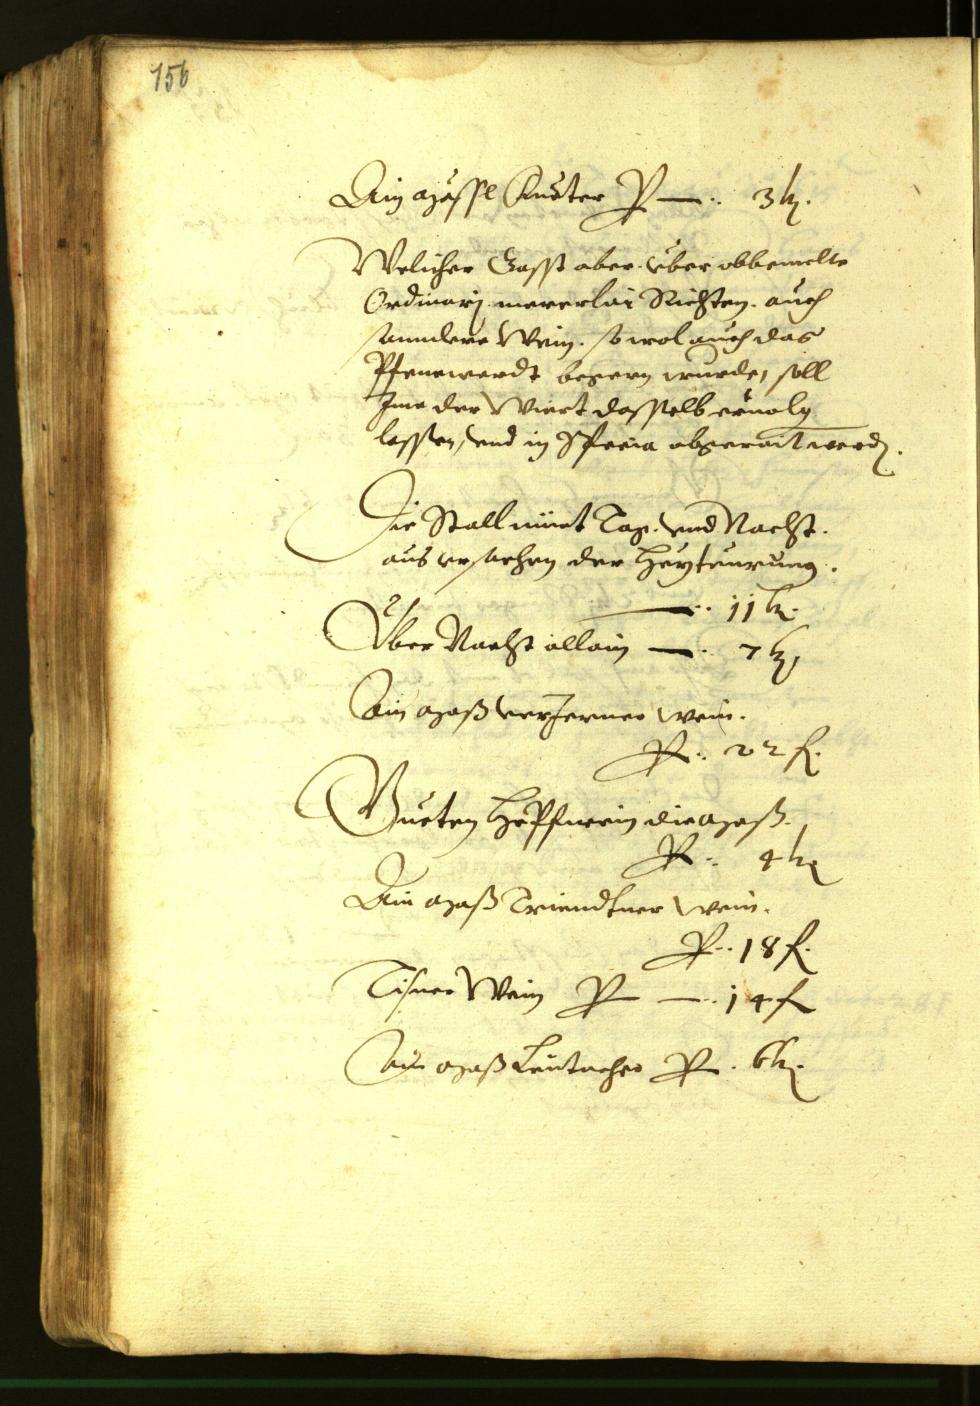 156
Ain mässl Fuetter P — .. 3 k.
Welicher Gasst aber. über obbemelte
Ordinarj. mererlai Richten. auch
sonndere Wein. so wol auch das
Pfenwerdt begern wurde, soll
Ime der Wiert dasselb ervolg
lassen, und in Specia abgerait werd.
Die Stallmiet Tag. und Nacht.
aus ursachen der Heyteurung.
— .. 11 k.
Über Nacht allain — . 7 k.
Ain mass verferner wein.
P .. 22 f.
Gueten Hepfwein die mass.
P .. 4 k
Ain mass Triendtner Wein.
P .. 18 f.
Tisner Wein P — .. 14 f
Ain mass Leutacher P . 6 k.